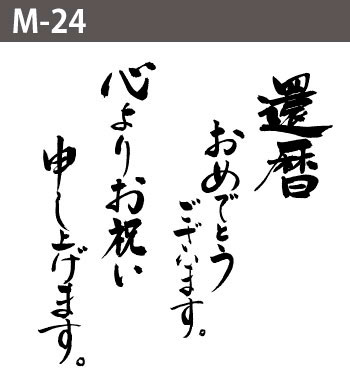 M-24
還暦
おめでとう
ございます。
心よりお祝い
申し上げます。